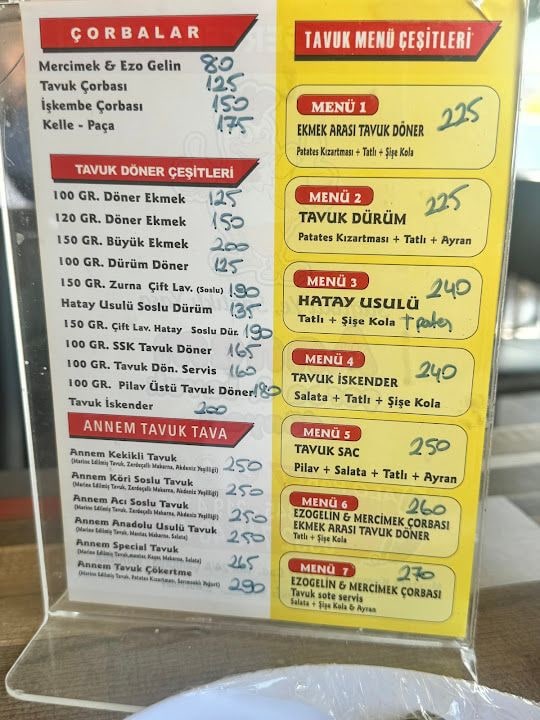 ÇORBALAR
Mercimek & Ezo Gelin 80
Tavuk Çorbası 125
İşkembe Çorbası 150
Kelle - Paça 175
TAVUK DÖNER ÇEŞİTLERİ
100 GR. Döner Ekmek 125
120 GR. Döner Ekmek 150
150 GR. Büyük Ekmek 200
100 GR. Dürüm Döner 125
150 GR. Zurna Çift Lav. (Soslu) 190
Hatay Usulü Soslu Dürüm 135
150 GR. Çift Lav. Hatay Soslu Dür. 190
100 GR. SSK Tavuk Döner 165
100 GR. Tavuk Dön. Servis 160
100 GR. Pilav Üstü Tavuk Döner 180
Tavuk İskender 200
ANNEM TAVUK TAVA
Annem Kekikli Tavuk 250
(Marine Edilmiş Tavuk, Zerdeçallı Makarna, Akdeniz Yeşilliği)
Annem Köri Soslu Tavuk 250
(Marine Edilmiş Tavuk, Zerdeçallı Makarna, Akdeniz Yeşilliği)
Annem Acı Soslu Tavuk 250
(Marine Edilmiş Tavuk, Zerdeçallı Makarna, Akdeniz Yeşilliği)
Annem Anadolu Usulü Tavuk 250
(Marine Edilmiş Tavuk, Mantar, Makarna, Salata)
Annem Special Tavuk 265
(Marine Edilmiş Tavuk, mantar, Kaşar, Makarna, Salata)
Annem Tavuk Çökertme 290
(Marine Edilmiş Tavuk, Patates Kızartması, Sarımsaklı Yoğurt)
TAVUK MENÜ ÇEŞİTLERİ
MENÜ 1 225
EKMEK ARASI TAVUK DÖNER
Patates Kızartması + Tatlı + Şişe Kola
MENÜ 2 225
TAVUK DÜRÜM
Patates Kızartması + Tatlı + Ayran
MENÜ 3 240
HATAY USULÜ
Tatlı + Şişe Kola
MENÜ 4 240
TAVUK İSKENDER
Salata + Tatlı + Şişe Kola
MENÜ 5 250
TAVUK SAC
Pilav + Salata + Tatlı + Ayran
MENÜ 6 260
EZOGELİN & MERCİMEK ÇORBASI
EKMEK ARASI TAVUK DÖNER
Tatlı + Şişe Kola
MENÜ 7 270
EZOGELİN & MERCİMEK ÇORBASI
Tavuk sote servis
Salata + Şişe Kola & Ayran